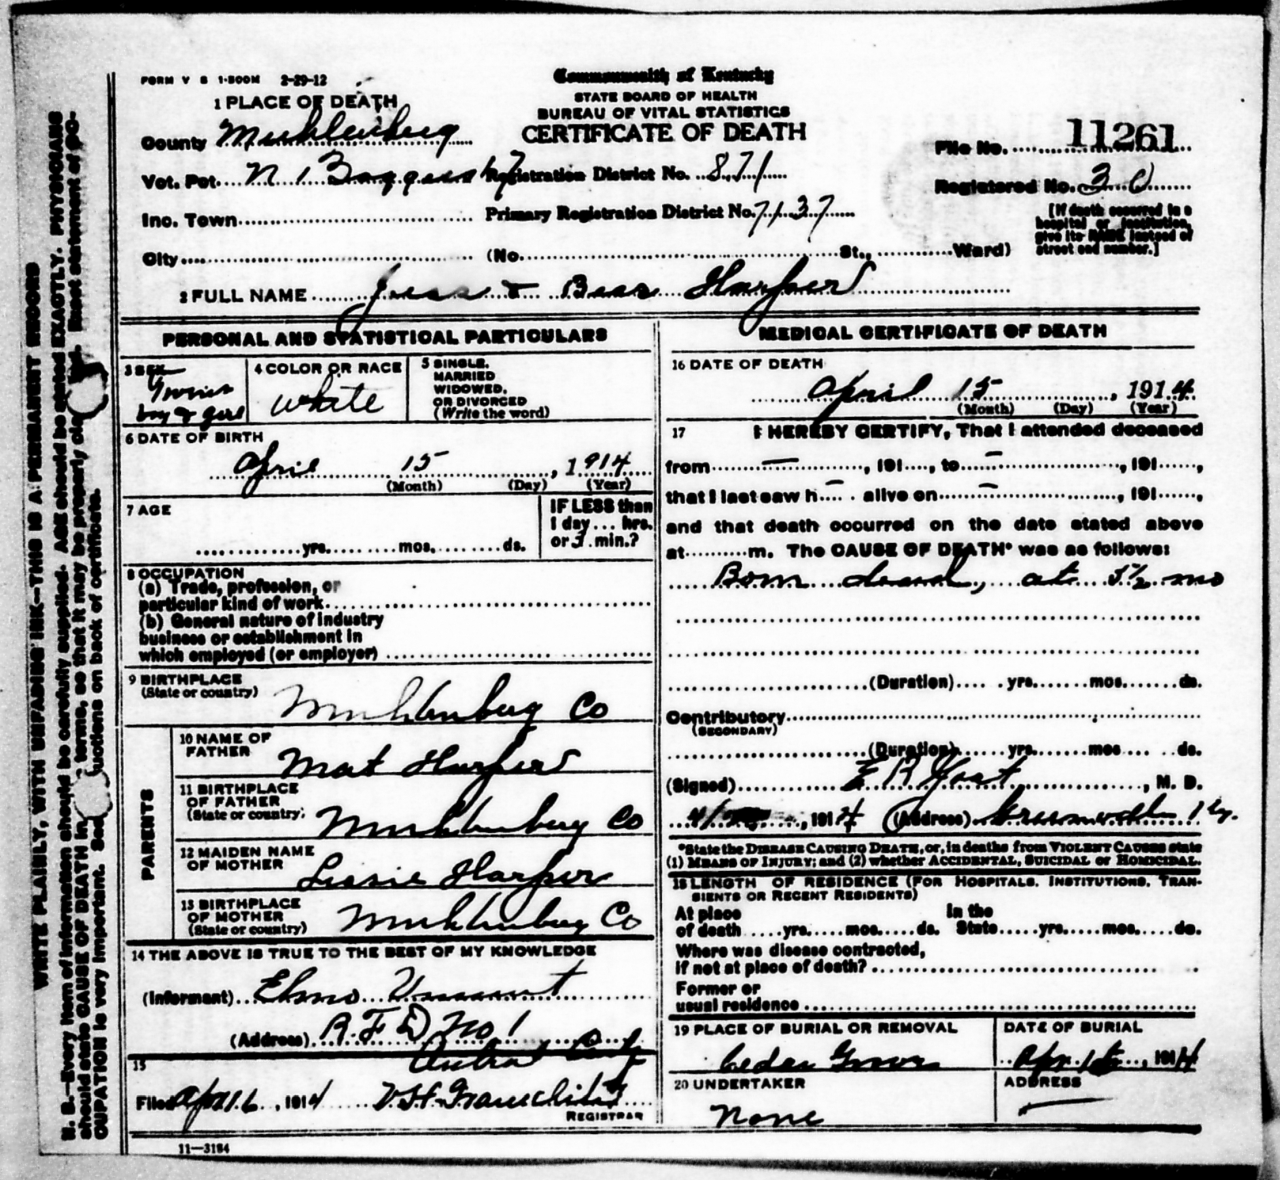 FORM V S 1-500M 2-29-12
Commonwealth of Kentucky
STATE BOARD OF HEALTH
BUREAU OF VITAL STATISTICS
CERTIFICATE OF DEATH
1 PLACE OF DEATH
County Muhlenberg
Vot. Pct. N 1
Inc. Town
City
Registration District No. 871
Primary Registration District No. 7137
(No. St., Ward)
File No. 11261
Registered No. 30
[If death occurred in a
hospital or institution,
give its NAME instead of
street and number.]
2 FULL NAME Jess & Bess Harper
PERSONAL AND STATISTICAL PARTICULARS
3 SEX
Twins
boy & girl
4 COLOR OR RACE
white
5 SINGLE,
MARRIED
WIDOWED,
OR DIVORCED
(Write the word)
6 DATE OF BIRTH
April 15, 1914
(Month) (Day) (Year)
7 AGE
yrs. mos. ds.
IF LESS than
1 day ... hrs.
or min.?
8 OCCUPATION
(a) Trade, profession, or
particular kind of work
(b) General nature of industry
business or establishment in
which employed (or employer)
9 BIRTHPLACE
(State or country)
Muhlenberg Co
PARENTS
10 NAME OF
FATHER
Mat Harper
11 BIRTHPLACE
OF FATHER
(State or country)
Muhlenberg Co
12 MAIDEN NAME
OF MOTHER
Lissie Harper
13 BIRTHPLACE
OF MOTHER
(State or country)
Muhlenberg Co
14 THE ABOVE IS TRUE TO THE BEST OF MY KNOWLEDGE
(Informant) Elmo
(Address) R.F.D No 1
15
Filed Apr 16, 1914
REGISTRAR
11—3184
MEDICAL CERTIFICATE OF DEATH
16 DATE OF DEATH
April 15, 1914
(Month) (Day) (Year)
17 I HEREBY CERTIFY, That I attended deceased
from — , 191 , to — , 191 ,
that I last saw h — alive on — , 191 ,
and that death occurred on the date stated above
at m. The CAUSE OF DEATH* was as follows:
Born dead, at 5½ mo
(Duration) yrs. mos. ds.
Contributory
(SECONDARY)
(Duration) yrs. mos. ds.
(Signed) E R Yost, M. D.
4/ , 1914 (Address)
*State the DISEASE CAUSING DEATH, or, in deaths from VIOLENT CAUSES state
(1) MEANS OF INJURY; and (2) whether ACCIDENTAL, SUICIDAL or HOMICIDAL.
18 LENGTH OF RESIDENCE (FOR HOSPITALS, INSTITUTIONS, TRAN-
SIENTS OR RECENT RESIDENTS)
At place
of death yrs. mos. ds.
In the
State yrs. mos. ds.
Where was disease contracted,
if not at place of death?
Former or
usual residence
19 PLACE OF BURIAL OR REMOVAL
Cedar Grove
DATE OF BURIAL
Apr 16, 1914
20 UNDERTAKER
None
ADDRESS
WRITE PLAINLY, WITH UNFADING INK—THIS IS A PERMANENT RECORD
N. B.—Every item of information should be carefully supplied. AGE should be stated EXACTLY. PHYSICIANS
should state CAUSE OF DEATH in terms, so that it may be properly Exact statement of OC-
CUPATION is very important. See on back of certificate.